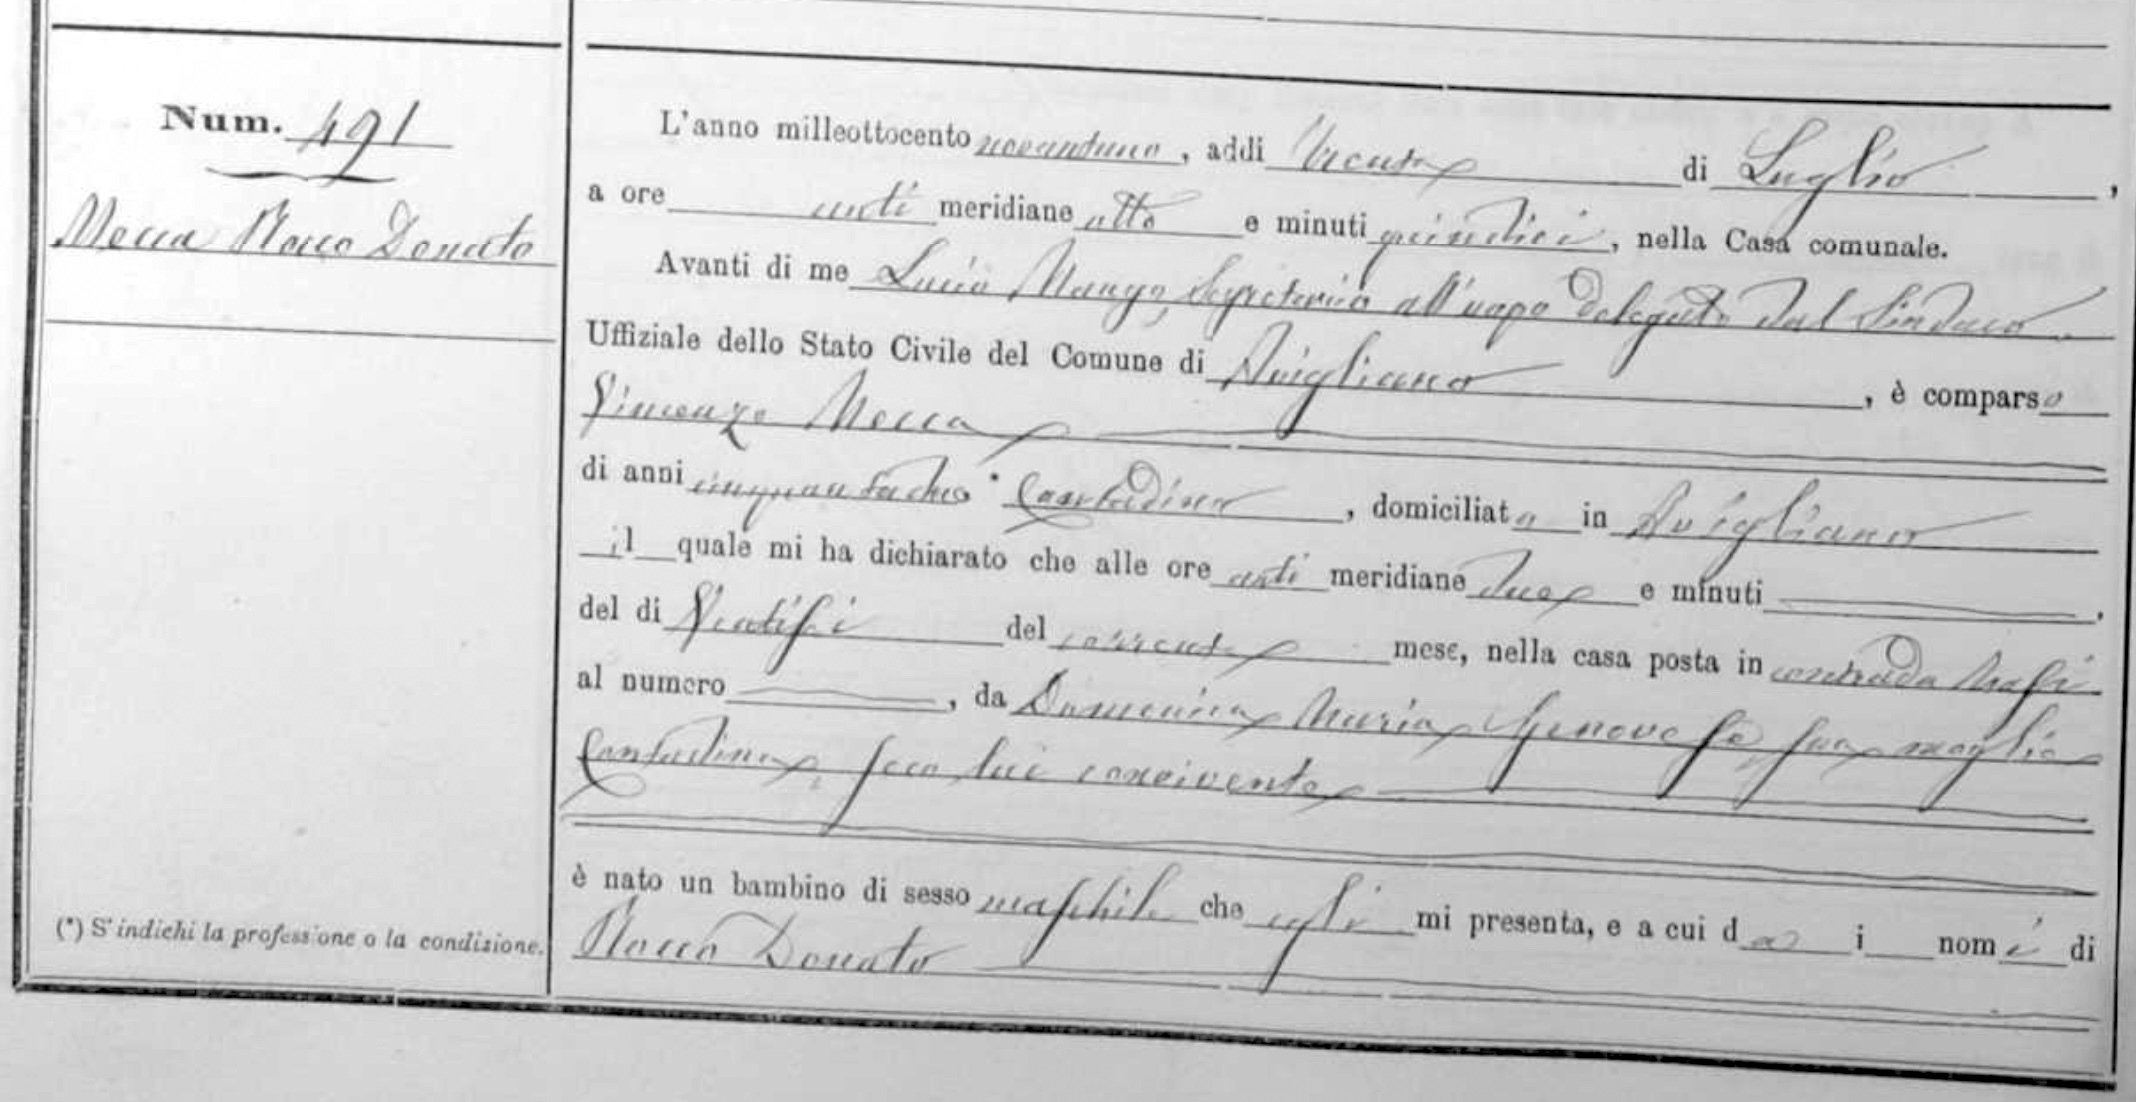 Num. 491
Mecca Rocco Donato
(*) S'indichi la professione o la condizione.
L'anno milleottocento novantuno, addi Trenta di Luglio,
a ore anti meridiane otto e minuti quindici, nella Casa comunale.
Avanti di me Lucio Mango, Segretario all'uopo delegato dal Sindaco
Uffiziale dello Stato Civile del Comune di Avigliano, è comparso
Vincenzo Mecca
di anni * Contadino, domiciliato in Avigliano
il quale mi ha dichiarato che alle ore anti meridiane due e minuti
del di Ventisei del corrente mese, nella casa posta in contrada
al numero, da Domenica Maria Genovese, sua moglie
Contadina, seco lui convivente
è nato un bambino di sesso maschile che egli mi presenta, e a cui dà i nomi di
Rocco Donato